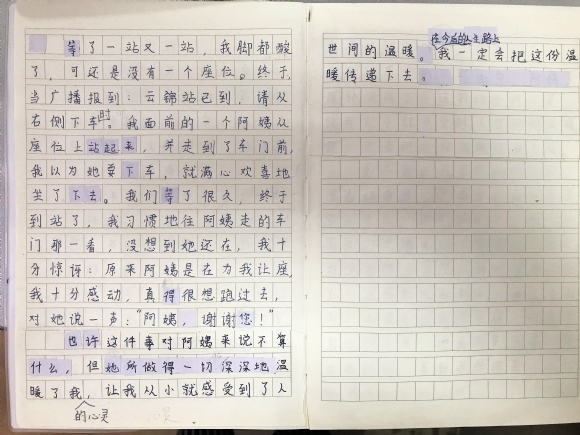 等了一站又一站，我脚都酸
了，可还是没有一个座位。终于，
当广播报到：云锦站已到，请从
右侧下车时。我面前的一个阿姨从
座位上站起来，并走到了车门前，
我以为她要下车，就满心欢喜地
坐了下去。我们等了很久，终于
到站了，我习惯地往阿姨走的车
门那一看，没想到她还在，我十
分惊讶：原来阿姨是在为我让座
我十分感动，真得很想跑过去，
对她说一声：“阿姨，谢谢您！”
也许这件事对阿姨来说不算
什么，但她所做得一切深深地温
暖了我，让我从小就感受到了人
的心灵
在今后的人生路上
世间的温暖。我一定会把这份温
暖传递下去。